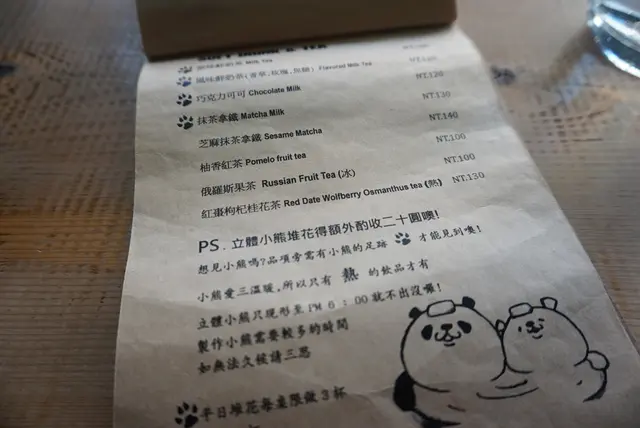 SOFT DRINK & TEA
原味鮮奶茶 Milk Tea
風味鮮奶茶(香草,玫瑰,焦糖) Flavored Milk Tea NT.120
巧克力可可 Chocolate Milk NT.120
抹茶拿鐵 Matcha Milk NT.130
芝麻抹茶拿鐵 Sesame Matcha NT.140
柚香紅茶 Pomelo fruit tea NT.100
俄羅斯果茶 Russian Fruit Tea (冰) NT.100
紅棗枸杞桂花茶 Red Date Wolfberry Osmanthus tea (熱) NT.130
PS. 立體小熊堆花得額外酌收二十圓噢!
想見小熊嗎?品項旁需有小熊的足跡 才能見到噢!
小熊愛三溫暖,所以只有 熱 的飲品才有
立體小熊只現形至PM 6:00就不出沒囉!
製作小熊需要較多的時間
如無法久候請三思
平日堆花每桌限做3杯